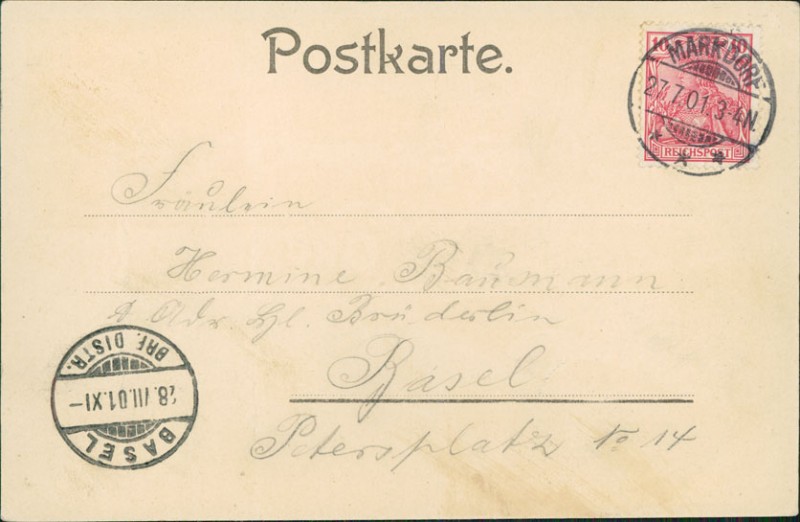 Postkarte.
10 10
MARKDORF
27.7.01 3-4N.
REICHSPOST
Fräulein
Hermine Baumann
p. Adr. Hl. Brüderlin
Basel
Petersplatz No 14
BRF. DISTR.
28.VII.01.XI-
BASEL